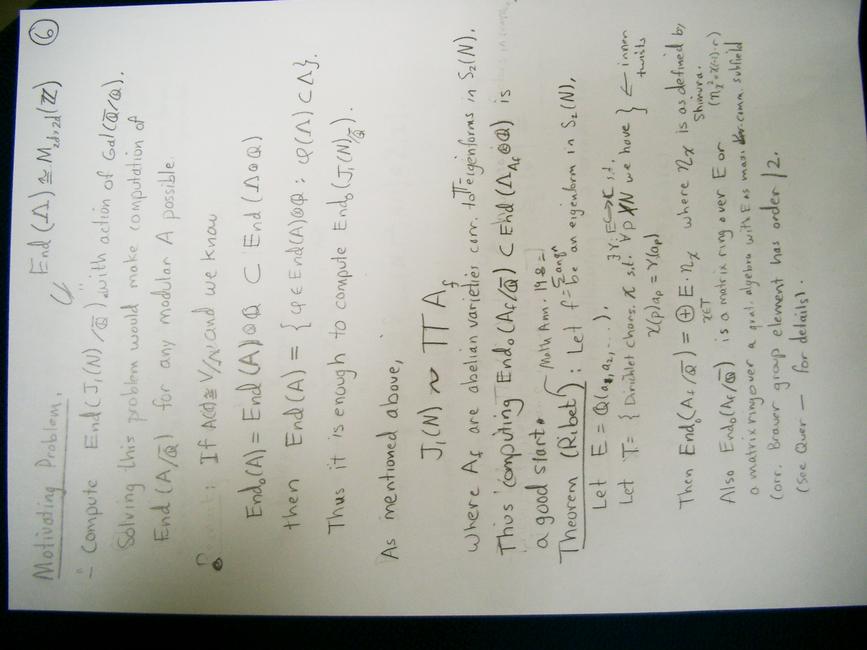 ⑥
Motivating Problem.
End(Λ) ≅ M₂d×₂d(ℤ)
- Compute End(J₁(N)/ℚ̄) with action of Gal(ℚ̄/ℚ).
Solving this problem would make computation of
End(A/ℚ̄) for any modular A possible.
: If A(ℂ) ≅ V/Λ, and we know
End₀(A) = End(A)⊗ℚ ⊂ End(Λ⊗ℚ)
then End(A) = {φ ∈ End(A)⊗ℚ : φ(Λ) ⊂ Λ}.
Thus it is enough to compute End₀(J₁(N)/ℚ̄).
As mentioned above,
J₁(N) ~ Π A_f
where A_f are abelian varieties corr. to eigenforms in S₂(N).
Thus computing End₀(A_f/ℚ̄) ⊂ End(Λ_A_f ⊗ℚ) is
a good start.
Math Ann. 198
Theorem (Ribet): Let f = Σaₙqⁿ be an eigenform in S₂(N).
Let E = ℚ(a₁, a₂, ...).
Let T = { Dirichlet chars. χ s.t. ∃ γ: E↪ℂ s.t. ∀ p∤N we have χ(p)a_p = γ(a_p) } ← inner twists
Then End₀(A_f/ℚ̄) = ⊕_{χ∈T} E·η_χ where η_χ is as defined by Shimura.
Also End₀(A_f/ℚ̄) is a matrix ring over E or
a matrix ring over a quat. algebra with E as max. comm. subfield
Brauer group element has order 1/2.
(see Quer — for details).